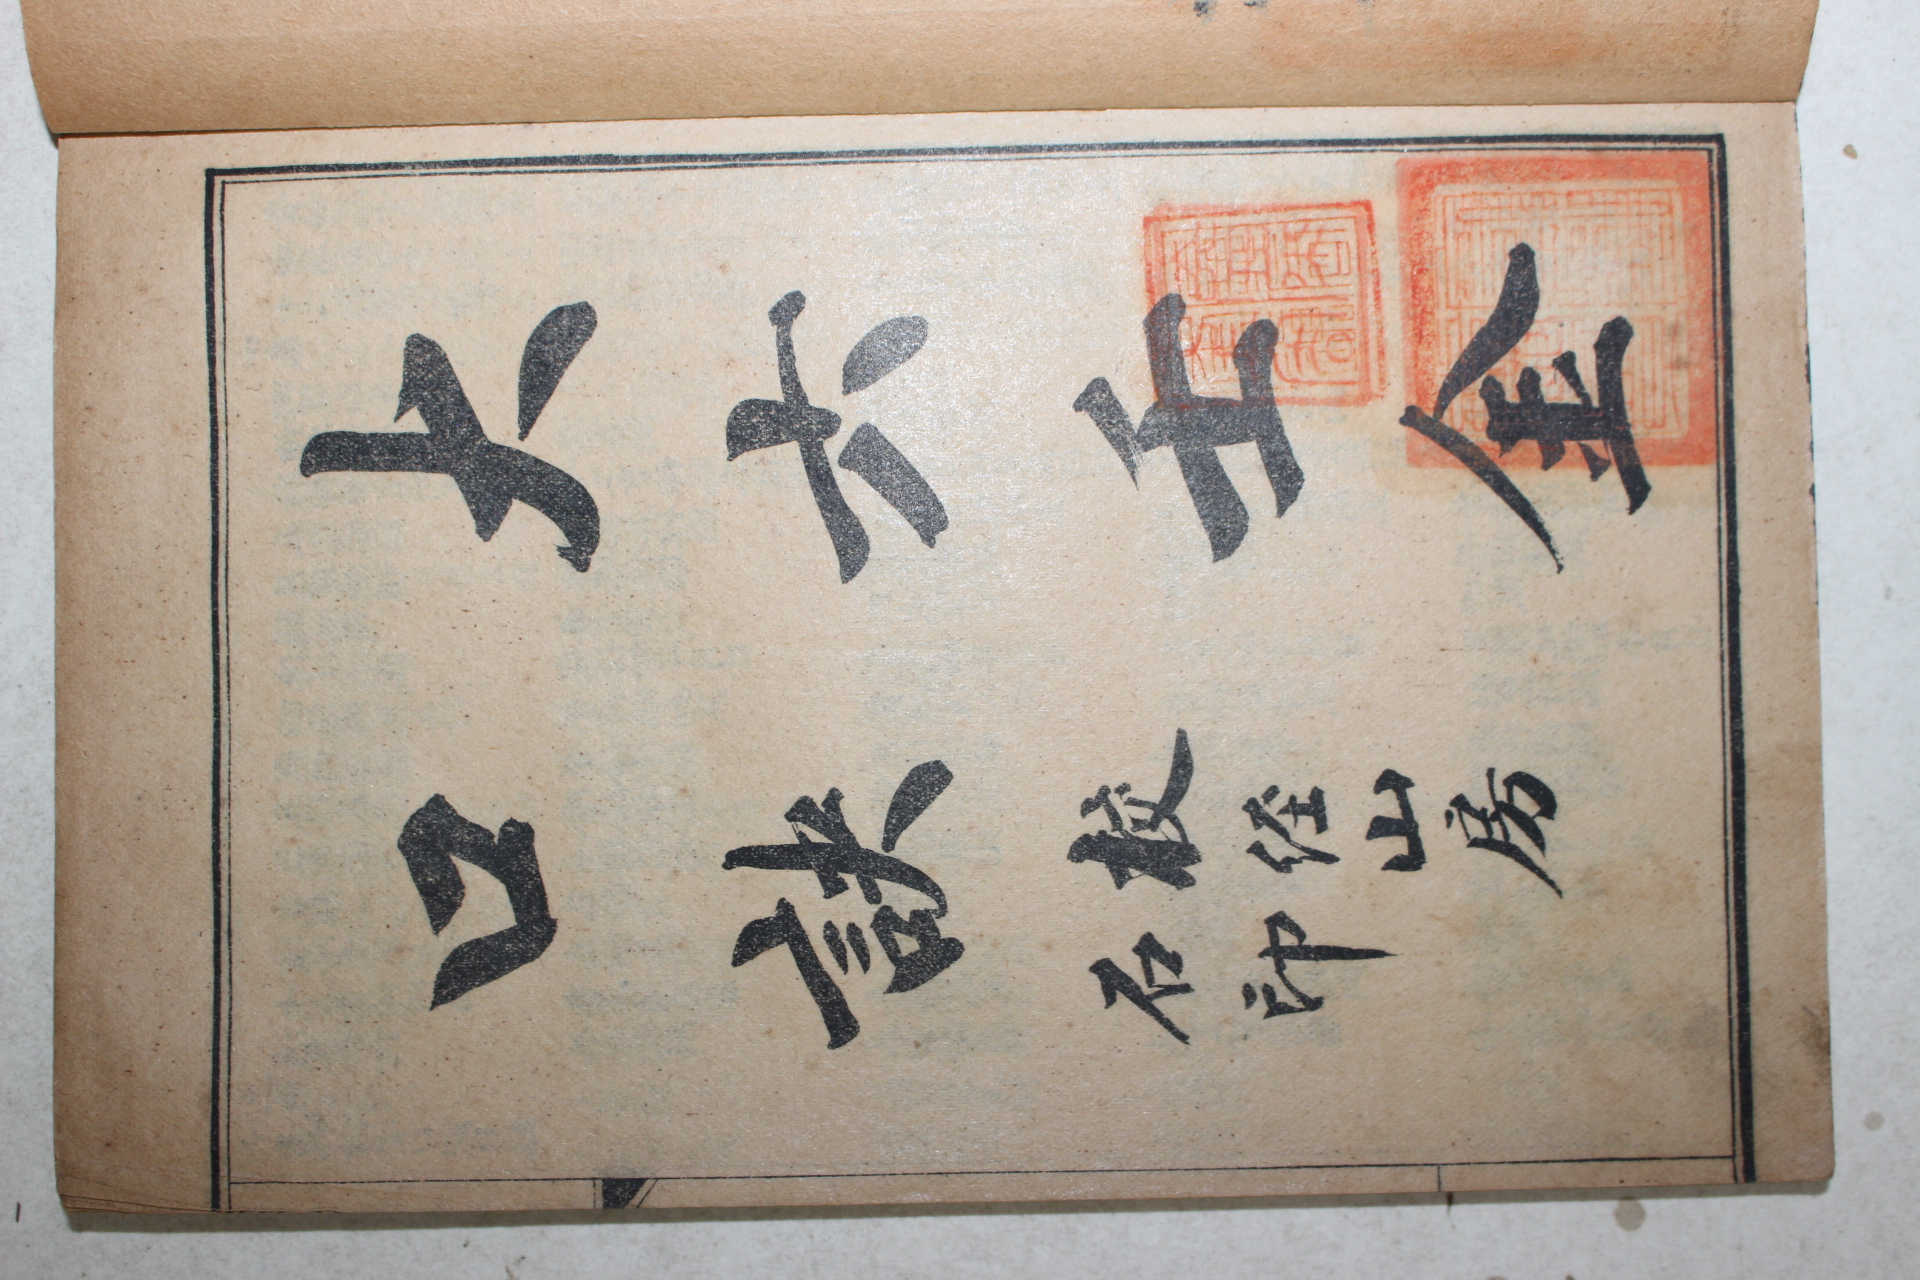 大六壬金
口訣
校経山房
石印